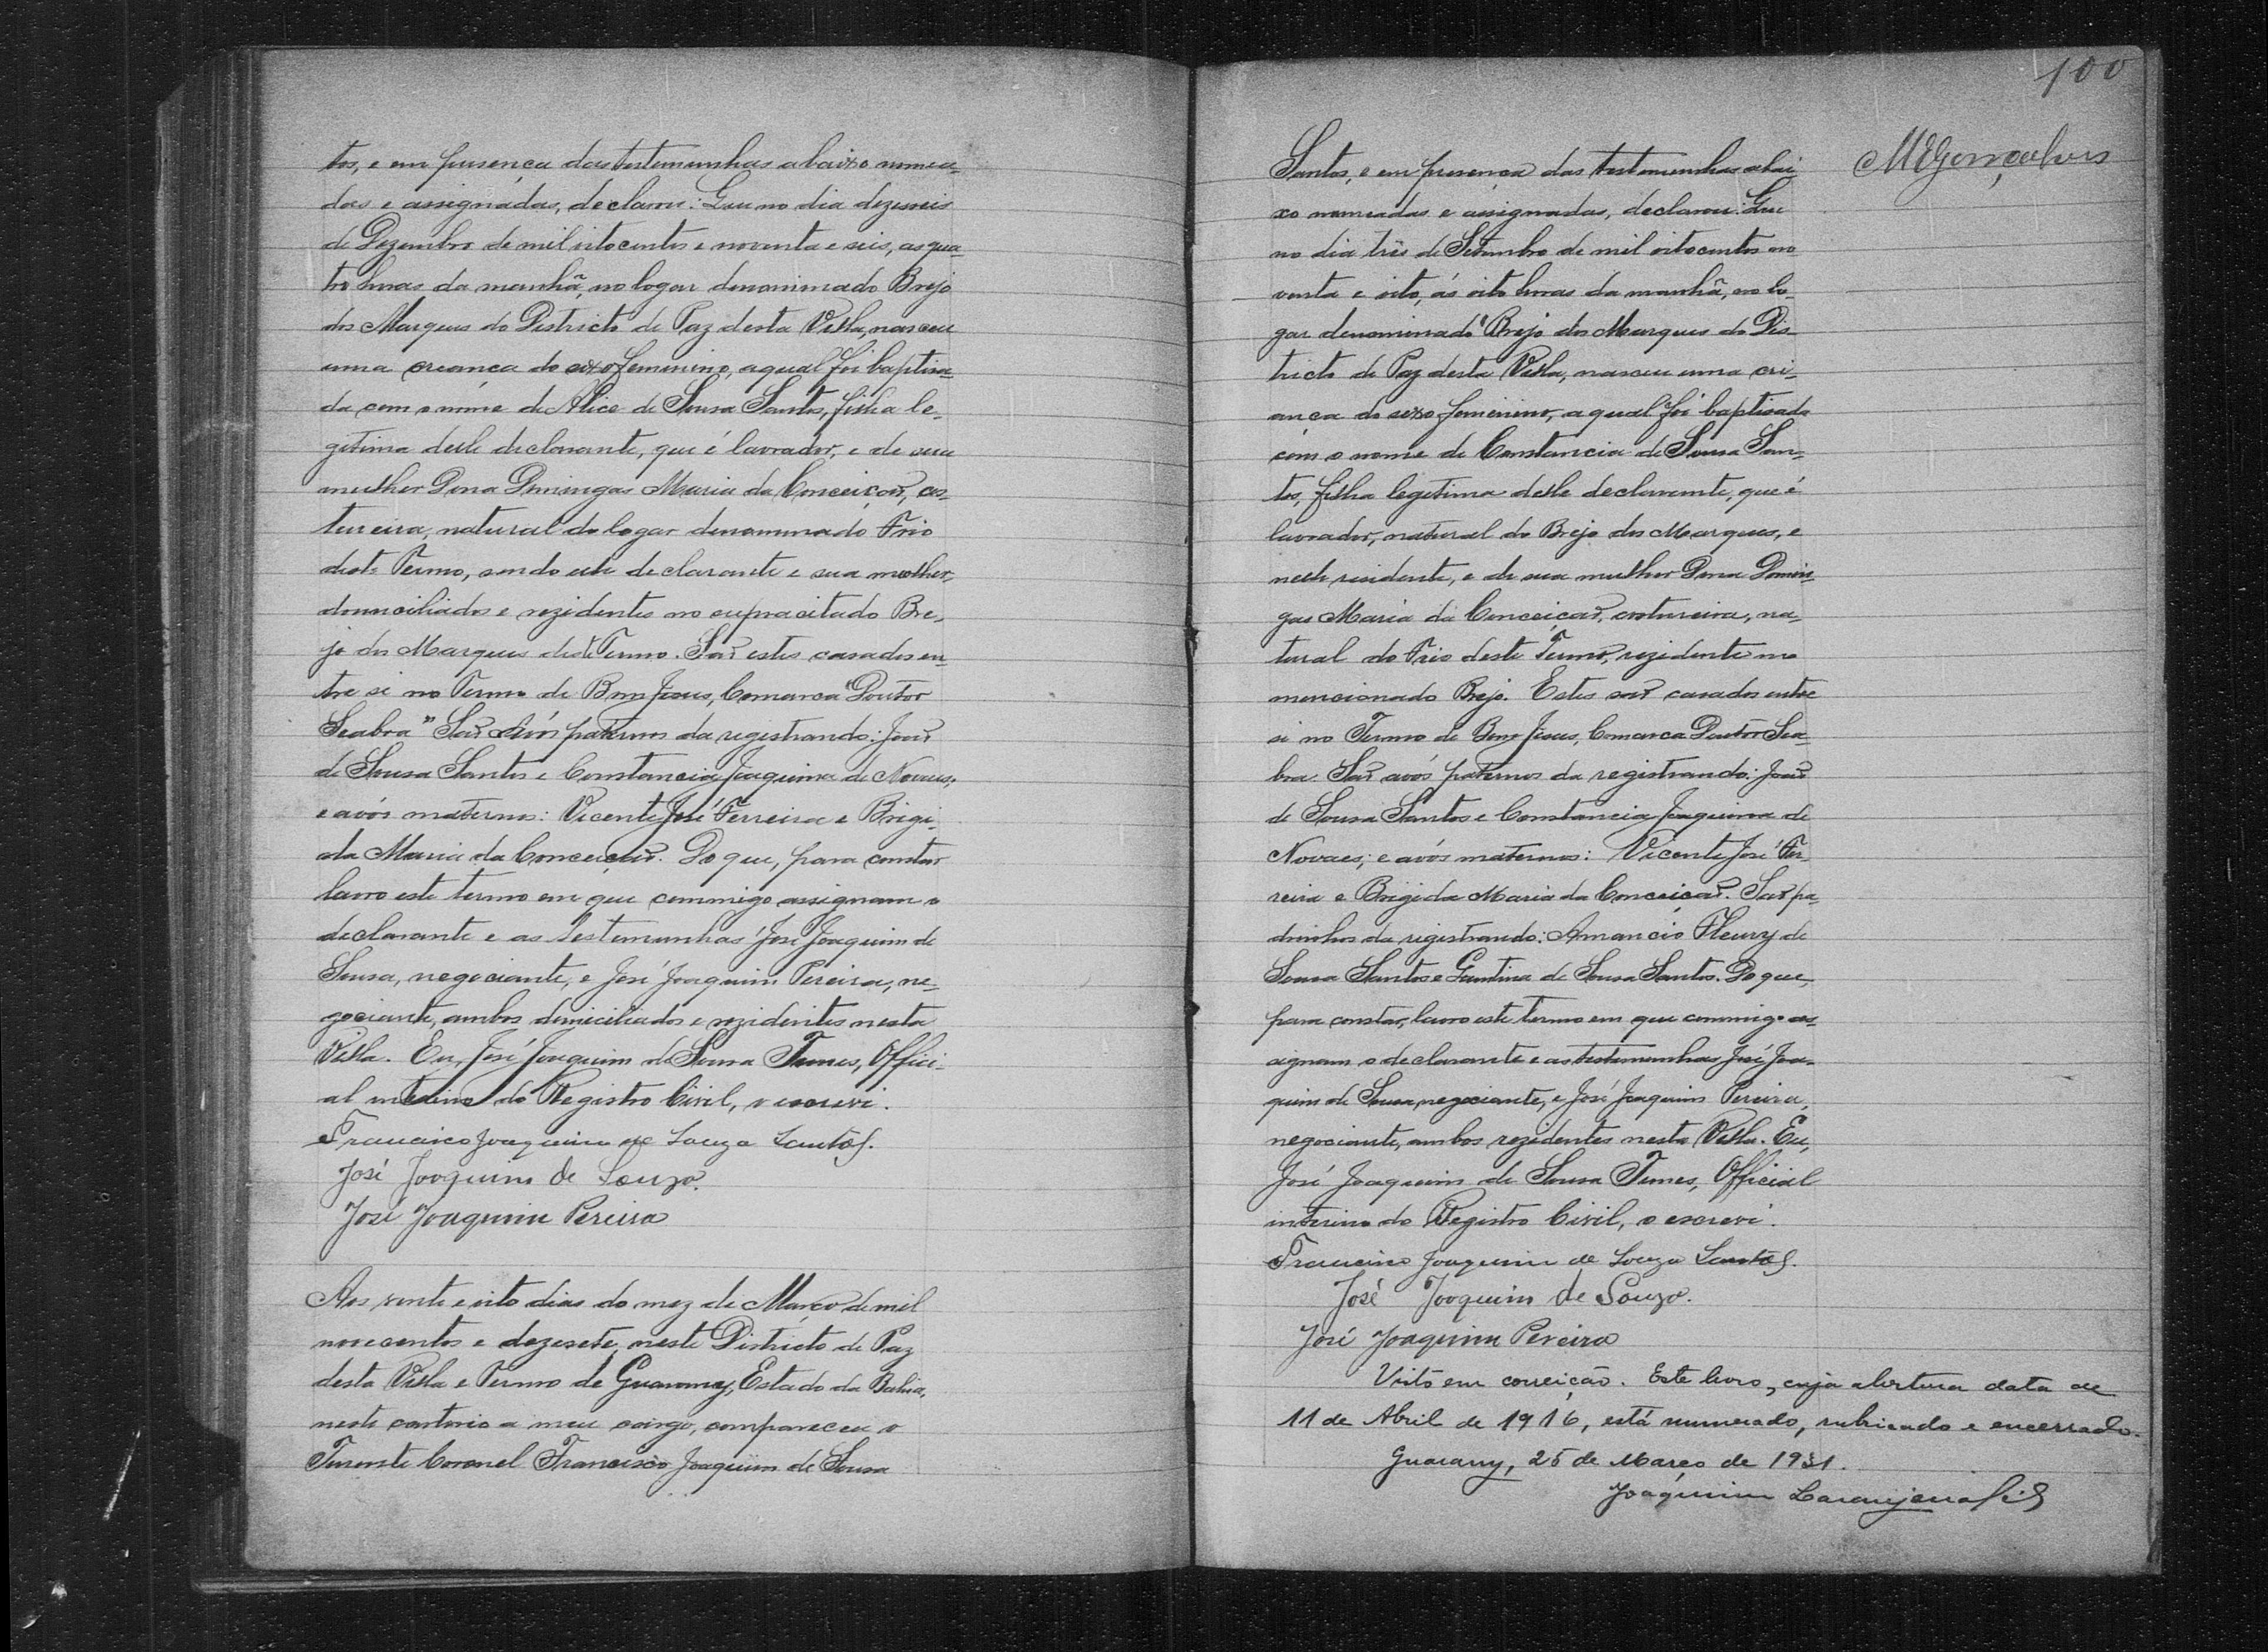 tos, e em presença das testemunhas abaixo nomea-
das e assignadas, declarou: Que no dia dezeseis
de Dezembro de mil oitocentos e noventa e seis, as qua-
tro horas da manhã, no logar denominado Brejo
dos Marques do Districto de Paz desta Villa, nasceu
uma creança do sexo femenino, a qual foi baptisa-
da com o nome de Alice de Sousa Santos, filha le-
gitima delle declarante, que é lavrador, e de sua
mulher Dona Domingas Maria da Conceição, cos-
tureira, natural do logar denominado Frio
deste Termo, sendo elle declarante e sua mulher,
domiciliados e rezidentes no supracitado Bre-
jo dos Marques deste Termo. São estes casados en-
tre si no Termo de Bom Jesus, Comarca "Doutor
Seabra" São avós paternos da registrando: João
de Sousa Santos e Constancia Joaquina de Novaes;
e avós maternos: Vicente José Ferreira e Brigi-
da Maria da Conceição. Do que, para constar
lavro este termo em que commigo assignam o
declarante e as testemunhas José Joaquim de
Sousa, negociante, e José Joaquim Pereira, ne-
gociante, ambos domiciliados e rezidentes nesta
Villa. Eu, José Joaquim de Sousa Tunes, Offici-
al interino do Registro Civil, o escrevi.
Francisco Joaquim de Souza Santos.
José Joaquim de Souza.
José Joaquim Pereira
Aos vinte e oito dias do mez de Março de mil
novecentos e dezesete, neste Districto de Paz
desta Villa e Termo de Guarany, Estado da Bahia,
neste cartorio a meu cargo, compareceu o
Tenente Coronel Francisco Joaquim de Sousa
100
MEGonçalves
Santos, e em presença das testemunhas abai-
xo nomeadas e assignadas, declarou: Que
no dia três de Setembro de mil oitocentos no
venta e oito, ás oito horas da manhã, no lo-
gar denominado "Brejo dos Marques do Dis-
tricto de Paz desta Villa, nasceu uma cri-
ança do sexo femenino, a qual foi baptisada
com o nome de Constancia de Sousa San-
tos, filha legitima delle declarante, que é
lavrador, natural do Brejo dos Marques, e
nelle residente, e de sua mulher Dona Domin-
gas Maria da Conceição, costureira, na-
tural do Frio deste Termo, rezidente no
mencionado Brejo. Estes são casados entre
si no Termo de Bom Jesus, Comarca Doutor Sea-
bra. São avós paternos da registrando: João
de Sousa Santos e Constancia Joaquina de
Novaes; e avós maternos: Vicente José Fer-
reira e Brigida Maria da Conceição. São pa-
drinhos da registrando: Amancio Fleury de
Sousa Santos e de Sousa Santos. Do que,
para constar, lavro este termo em que commigo as-
signam o declarante e as testemunhas José Joa-
quim de Sousa, negociante, e José Joaquim Pereira,
negociante, ambos rezidentes nesta Villa. Eu,
José Joaquim de Sousa Tunes, Official
interino do Registro Civil, o escrevi.
Francisco Joaquim de Souza Santos.
José Joaquim de Souza.
José Joaquim Pereira
Visto em correição. Este livro, cuja abertura data de
11 de Abril de 1916, está numerado, rubricado e encerrado.
Guarany, 25 de Março de 1931.
Joaquim Laranjeira